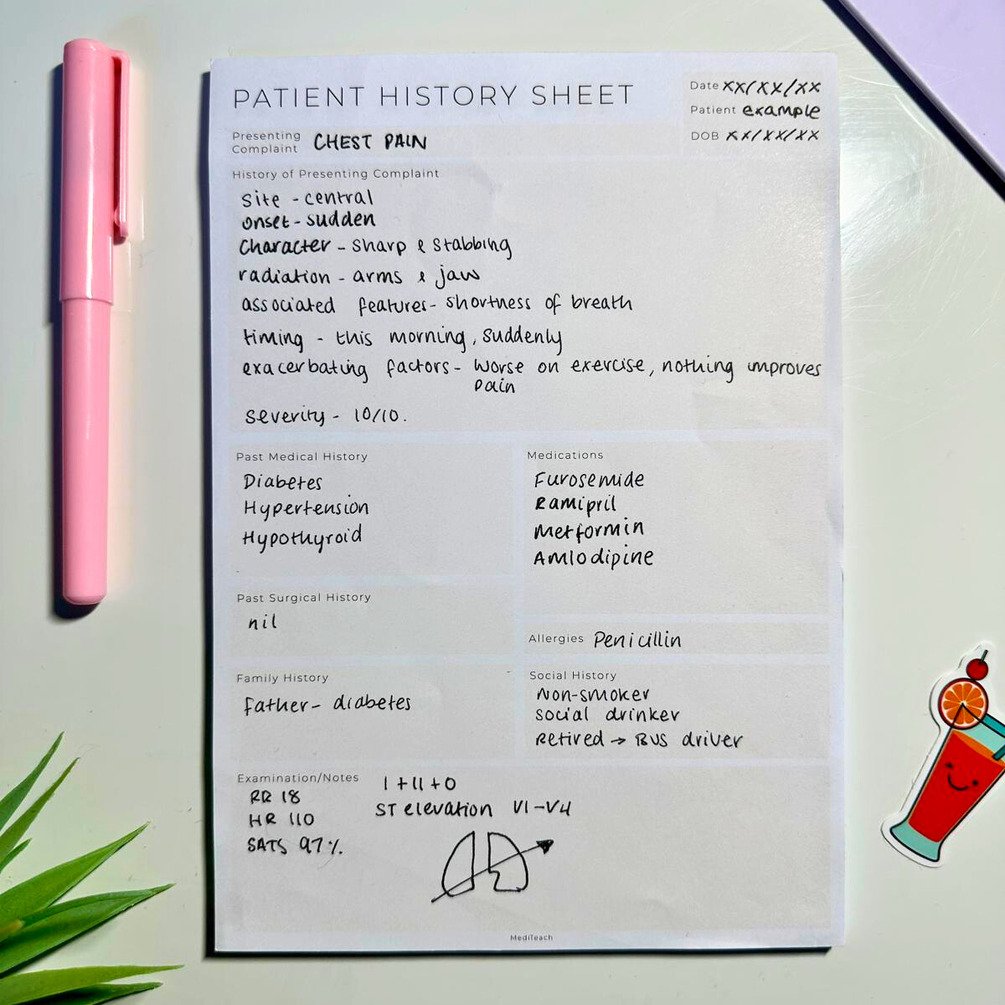 PATIENT HISTORY SHEET
Date xx/xx/xx
Patient example
DOB xx/xx/xx
Presenting Complaint CHEST PAIN
History of Presenting Complaint
Site - central
onset - sudden
Character - sharp & stabbing
radiation - arms & jaw
associated features - shortness of breath
timing - this morning, suddenly
exacerbating factors - worse on exercise, nothing improves
pain
severity - 10/10.
Past Medical History
Diabetes
Hypertension
Hypothyroid
Medications
Furosemide
Ramipril
Metformin
Amlodipine
Past Surgical History
nil
Allergies Penicillin
Family History
Father - diabetes
Social History
Non-smoker
social drinker
Retired → BUS driver
Examination/Notes
RR 18
HR 110
SATS 97%
I + II + O
ST elevation V1-V4
MediTeach